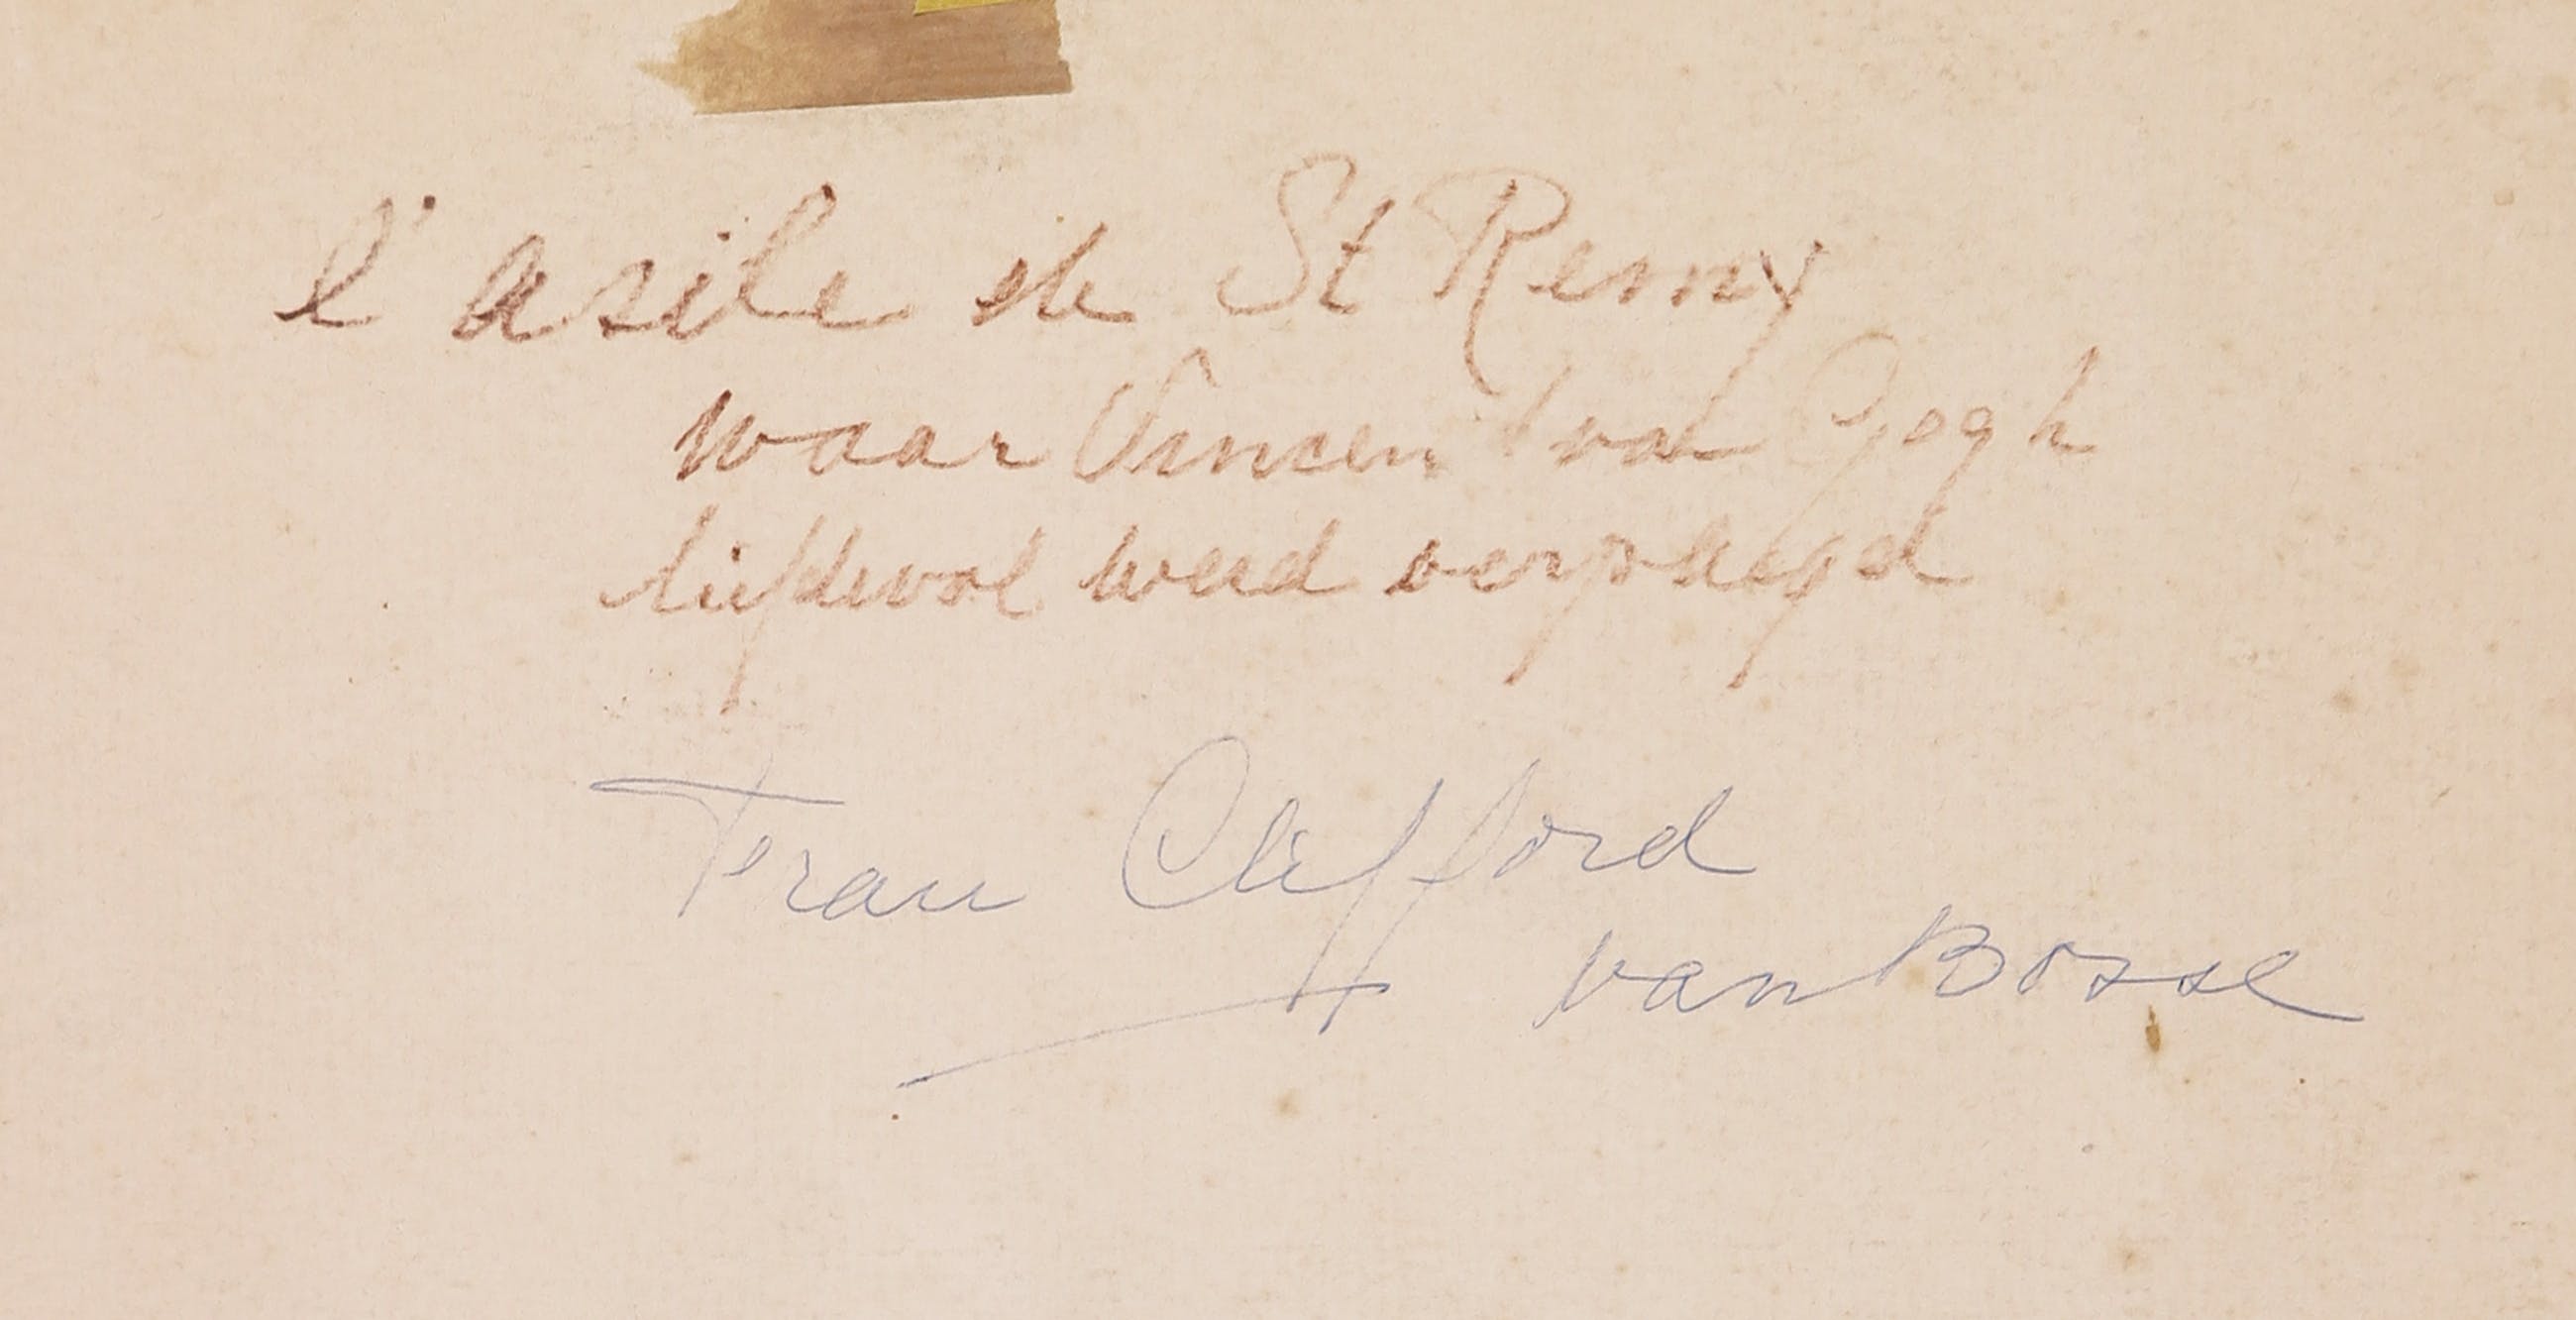 l'asile de St Remy
waar Vincent van Gogh
liefdevol werd verpleegd
Fran Clifford
van Bosse